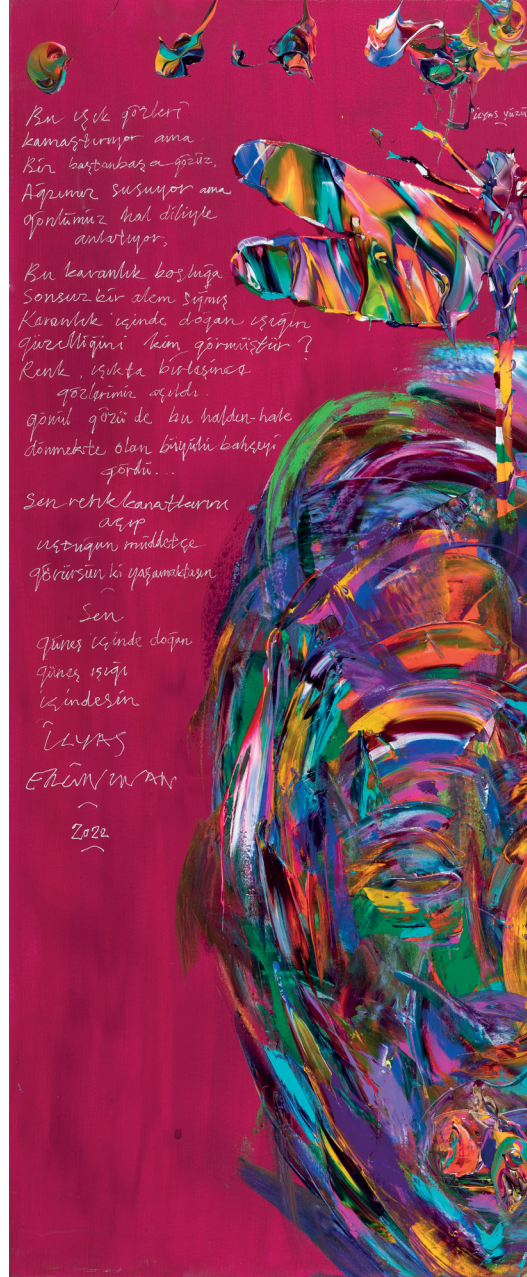 Bu ışık gözleri
kamaştırıyor ama
Biz baştanbaşa gözüz.
Ağzımız susuyor ama
gönlümüz hal diliyle
anlatıyor.
Bu karanlık boşluğa
Sonsuz bir alem sığmış
Karanlık içinde doğan ışığın
güzelliğini kim görmüştür?
Renk, ışıkta birleşince
gözlerimiz açıldı.
gönül gözü de bu halden-hale
dönmekte olan büyülü bahçeyi
gördü...
Sen renk kanatlarını
açıp
uçtuğun müddetçe
görürsün ki yaşamaktasın
Sen
güneş içinde doğan
güneş ışığı
içindesin
İLYAS
2022
ilyas yüzü